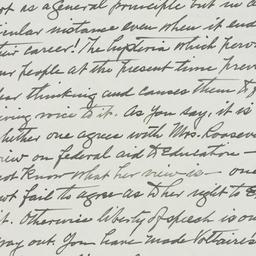 not as a general principle but in a
icular instance even when it end
their career! The hysteria which perv
our people at the present time prev
clear thinking and causes them to
iving voice to it. As you say, it is
whether one agree with Mrs. Roosev
view on federal aid to education —
not know what her view is — one
not fail to agree as to her right to
it. Otherwise liberty of speech is on
way out. You have made Voltaire's